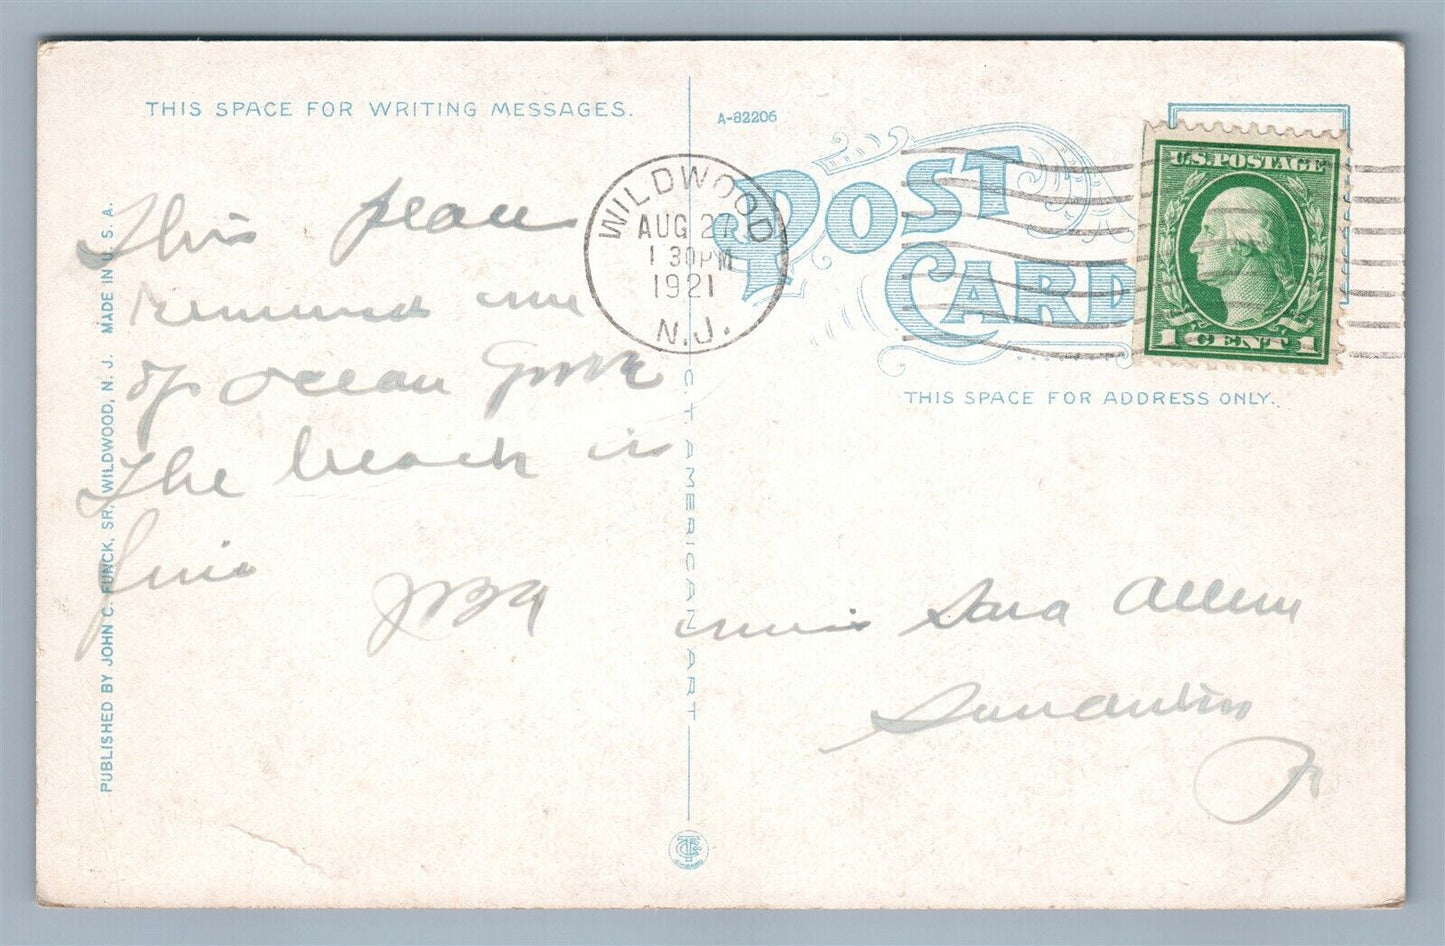 THIS SPACE FOR WRITING MESSAGES.
This place
reminds me
of Ocean Grove
The beach is
fine
PUBLISHED BY JOHN C. FUNCK, SR, WILDWOOD, N. J. MADE IN U. S. A.
C. T. AMERICAN ART
A-82206
POST CARD
WILDWOOD
AUG 27
1 30 PM
1921
N.J.
U.S. POSTAGE
1 CENT 1
THIS SPACE FOR ADDRESS ONLY.
Miss Sara Allen
Pa